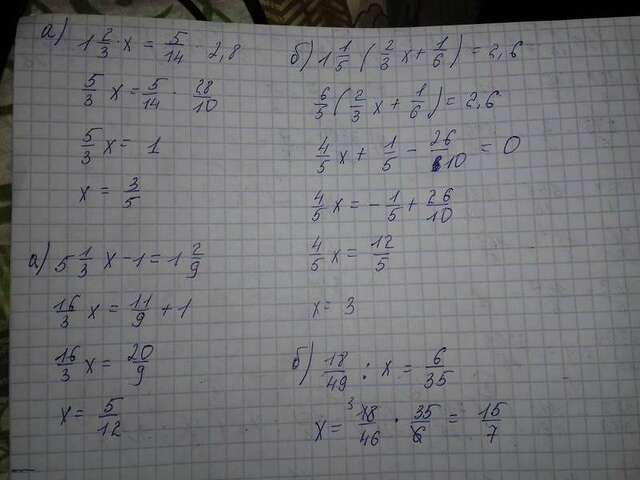 а) 1 2/3 · x = 5/14 · 2,8
5/3 x = 5/14 · 28/10
5/3 x = 1
x = 3/5
а) 5 1/3 x - 1 = 1 2/9
16/3 x = 11/9 + 1
16/3 x = 20/9
x = 5/12
б) 1 1/5 ( 2/3 x + 1/6 ) = 2,6
6/5 ( 2/3 x + 1/6 ) = 2,6
4/5 x + 1/5 - 26/10 = 0
4/5 x = - 1/5 + 26/10
4/5 x = 12/5
x = 3
б) 18/49 : x = 6/35
x = 3 18/46 · 35/6 = 15/7